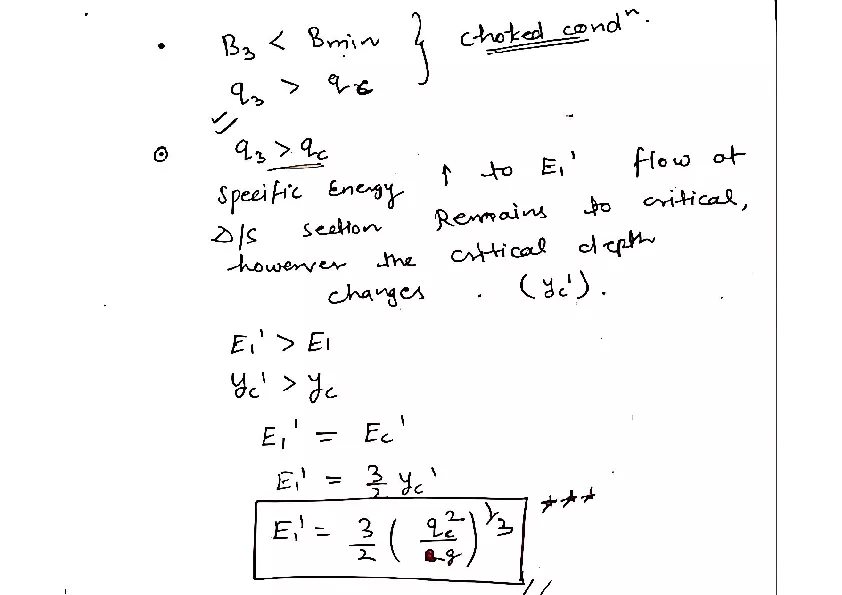 • B₃ < Bmin } choked condⁿ.
q₃ > qc
⊙ q₃ > qc
Specific Energy ↑ to E₁' flow at
D/S section Remains to critical,
however the critical depth
changes . (yc').
E₁' > E₁
yc' > yc
E₁' = Ec'
E₁' = 3/2 yc'
E₁' = 3/2 (qc²/g)^1/3 ★★★